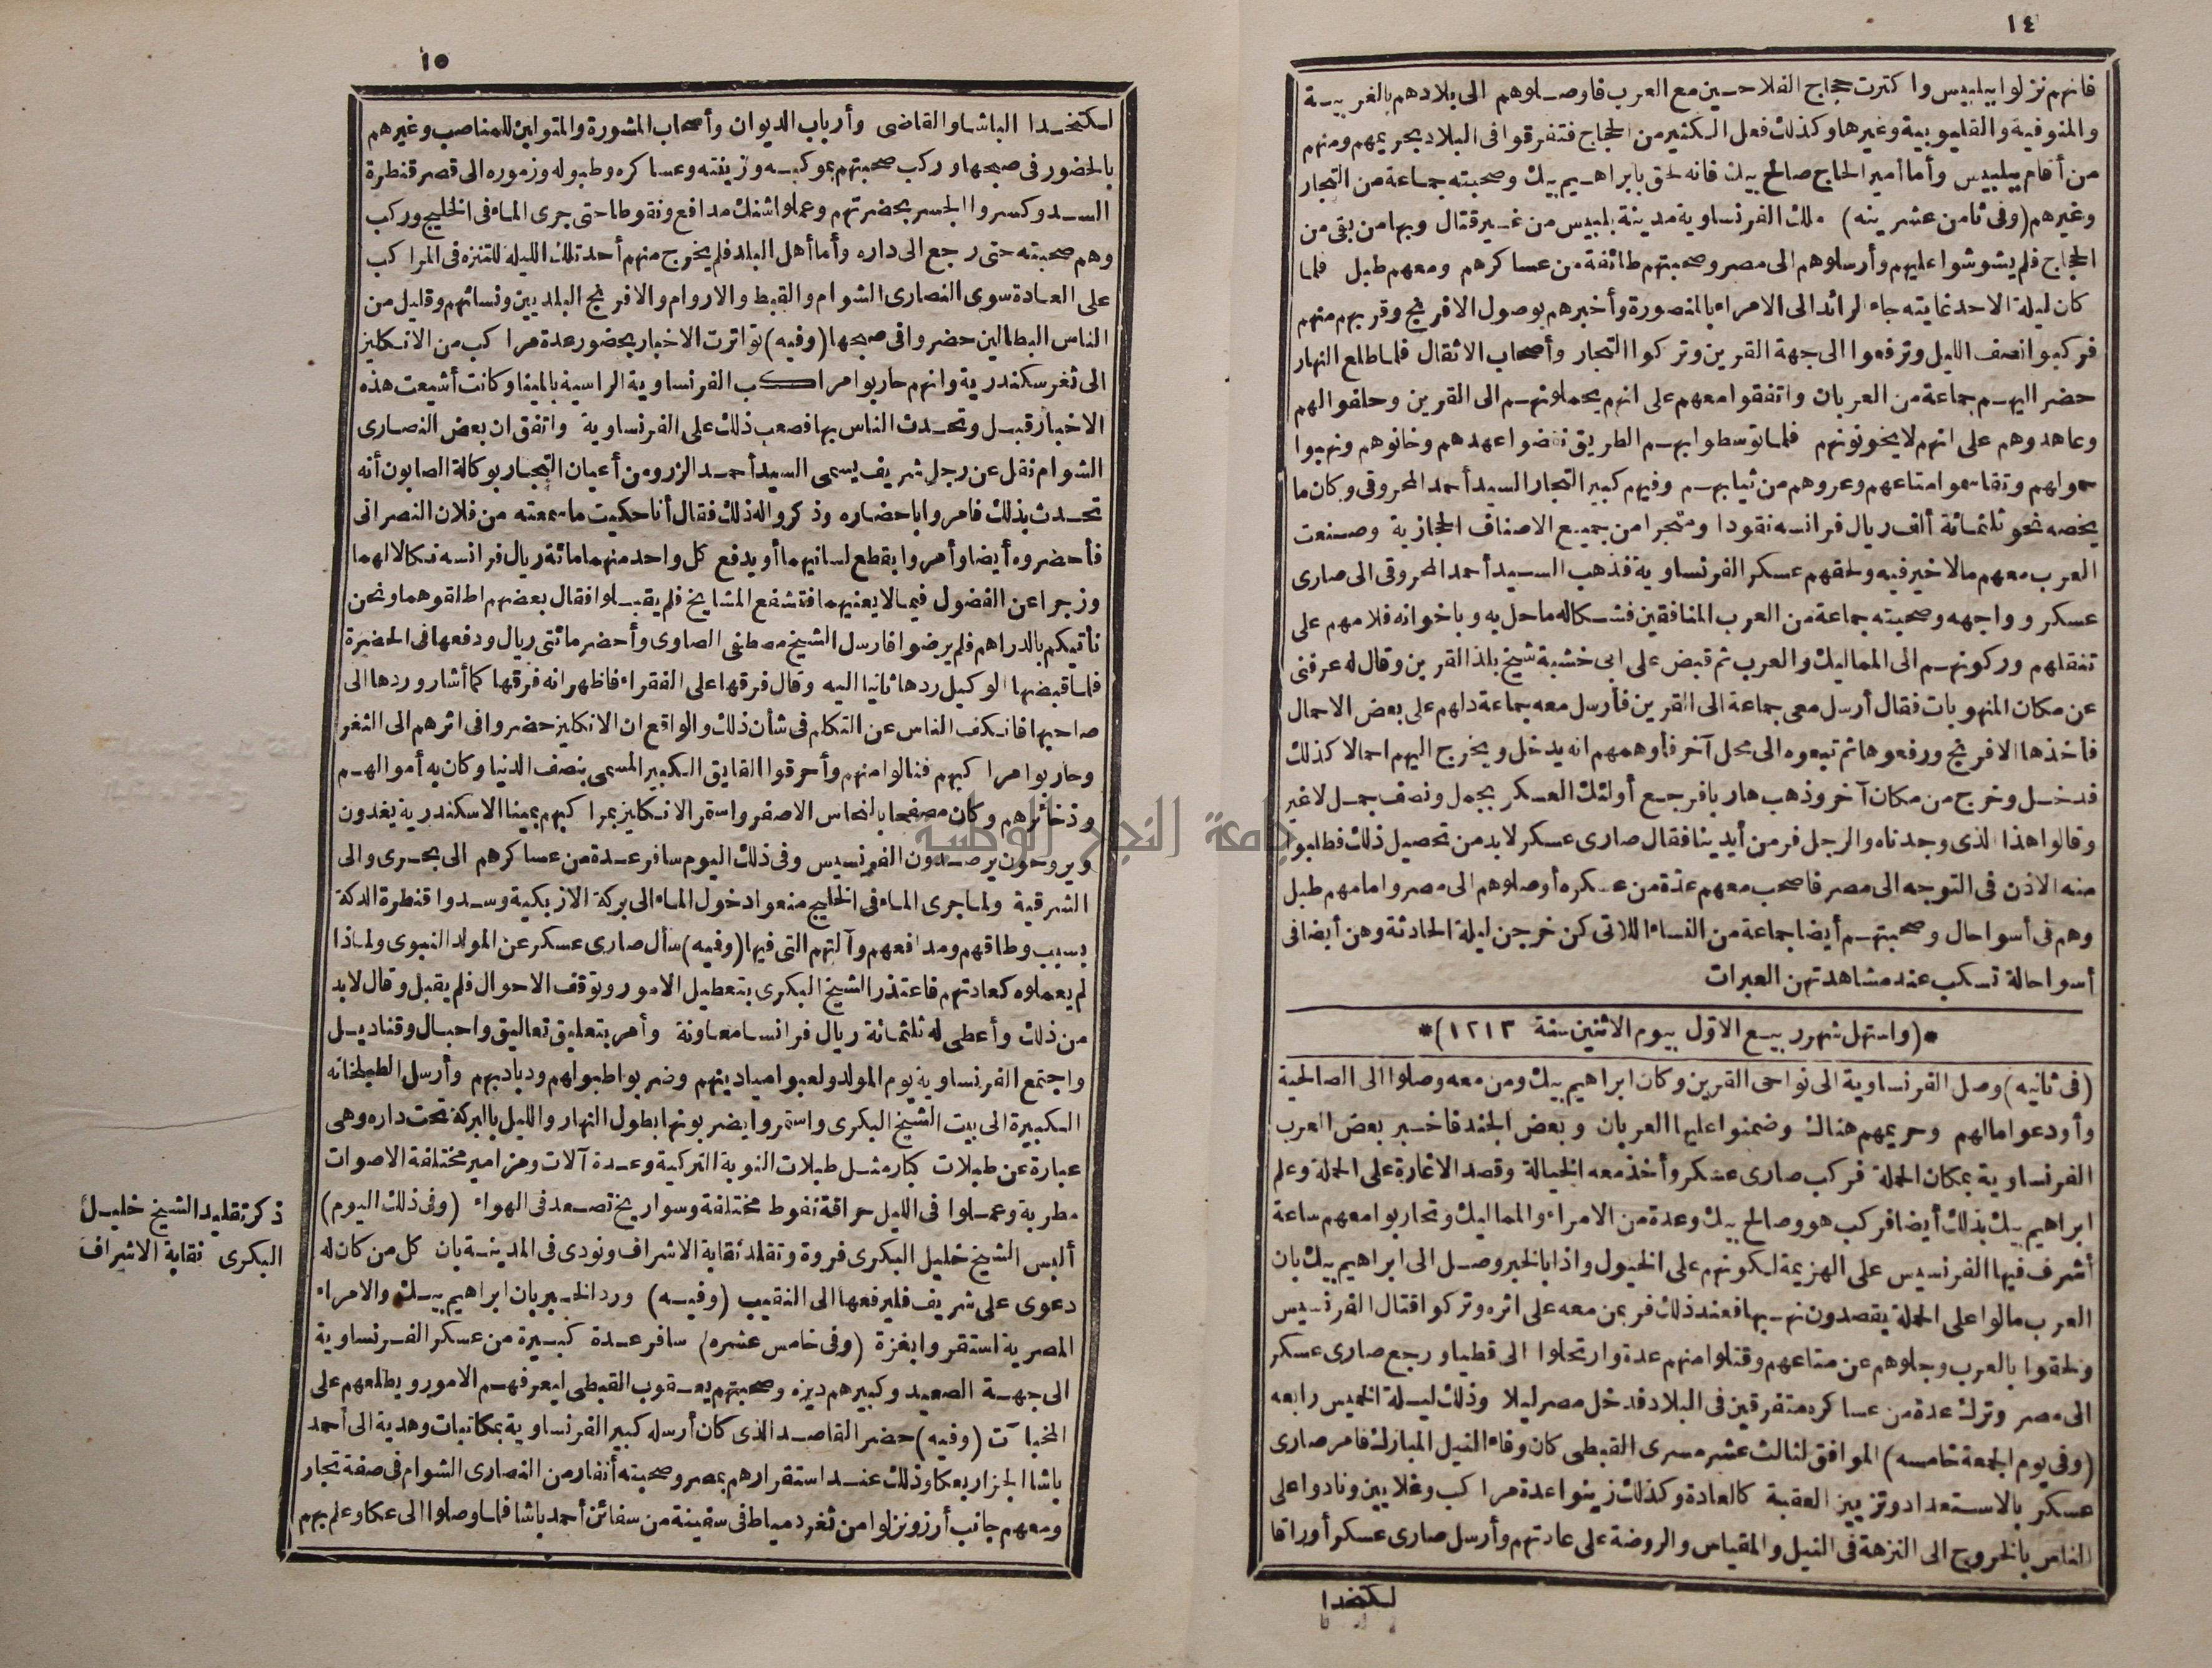 ١٤
فانهم نزلوا ببلبيس واكترت حجاج الفلاحين مع العرب فاوصلوهم الى بلادهم بالغربية
والمنوفية والقليوبية وغيرها وكذلك فعل الكثير من الحجاج فتفرقوا فى البلاد بحريمهم ومنهم
من أقام ببلبيس وأما أمير الحاج صالح بيك فانه لحق بابراهيم بيك وصحبته جماعة من التجار
وغيرهم (وفى ثامن عشرينه) ملك الفرنساوية مدينة بلبيس من غير قتال وبها من بقى من
الحجاج فلم يشوشوا عليهم وأرسلوهم الى مصر وصحبتهم طائفة من عساكرهم ومعهم طبل فلما
كان ليلة الاحد غايته جاء الرائد الى الامراء بالمنصورة وأخبرهم بوصول الافرنج وقربهم منهم
فركبوا نصف الليل وترفعوا الى جهة القرين وتركوا التجار وأصحاب الاثقال فلما طلع النهار
حضر اليهم جماعة من العربان واتفقوا معهم على انهم يحملونهم الى القرين وحلفوا لهم
وعاهدوهم على انهم لا يخونونهم فلما توسطوا بهم الطريق نقضوا عهدهم وخانوهم ونهبوا
حمولهم وتقاسموا متاعهم وعروهم من ثيابهم وفيهم كبير التجار السيد أحمد المحروقى وكان ما
يخصه نحو ثلثمائة ألف ريال فرانسه نقودا ومتجرا من جميع الاصناف الحجازية وصنعت
العرب معهم مالا خير فيه ولحقهم عسكر الفرنساوية فذهب السيد أحمد المحروقى الى صارى
عسكر وواجهه وصحبته جماعة من العرب المنافقين فشكاله ما حل به وباخوانه فلامهم على
تنقلهم وركونهم الى المماليك والعرب ثم قبض على ابى خشبة شيخ بلد القرين وقال له عرفنى
عن مكان المنهوبات فقال أرسل معى جماعة الى القرين فأرسل معه جماعة دلهم على بعض الاحمال
فأخذها الافرنج ورفعوها ثم تبعوه الى محل آخر فأوهمهم انه يدخل ويخرج اليهم احمالا كذلك
فدخل وخرج من مكان آخر وذهب هاربا فرجع أولئك العسكر بجمل ونصف جمل لا غير
وقالوا هذا الذى وجدناه والرجل فر من أيدينا فقال صارى عسكر لابد من تحصيل ذلك فطلبوا
منه الاذن فى التوجه الى مصر فاصحب معهم عدة من عسكره أوصلوهم الى مصر وامامهم طبل
وهم فى أسوا حال وصحبتهم أيضا جماعة من النساء اللاتى كن خرجن ليلة الحادثة وهن أيضا فى
أسوا حالة تسكب عند مشاهدتهن العبرات
*(واستهل شهر ربيع الاول بيوم الاثنين سنة ١٢١٣)*
(فى ثانيه) وصل الفرنساوية الى نواحى القرين وكان ابراهيم بيك ومن معه وصلوا الى الصالحية
وأودعوا مالهم وحريمهم هناك وضمنوا عليها العربان وبعض الجند فاخبر بعض العرب
الفرنساوية بمكان الحملة فركب صارى عسكر وأخذ معه الخيالة وقصد الاغارة على الحملة وعلم
ابراهيم بيك بذلك أيضا فركب هو وصالح بيك وعدة من الامراء والمماليك وتحاربوا معهم ساعة
أشرف فيها الفرنسيس على الهزيمة لكونهم على الخيول واذا بالخبر وصل الى ابراهيم بيك بان
العرب مالوا على الحملة يقصدون نهبها فعند ذلك فر بمن معه على اثره وتركوا قتال الفرنسيس
ولحقوا بالعرب وجلوهم عن متاعهم وقتلوا منهم عدة وارتحلوا الى قطيا ورجع صارى عسكر
الى مصر وترك عدة من عساكره متفرقين فى البلاد فدخل مصر ليلا وذلك ليلة الخميس رابعه
(وفى يوم الجمعة خامسه) الموافق لثالث عشر مسرى القبطى كان وفاء النيل المبارك فامر صارى
عسكر بالاستعداد وتزيين العقبة كالعادة وكذلك زينوا عدة مراكب وغلايين ونادوا على
الناس بالخروج الى النزهة فى النيل والمقياس والروضة على عادتهم وأرسل صارى عسكر أوراقا
لكتخدا
١٥
لكتخدا الباشا والقاضى وأرباب الديوان وأصحاب المشورة والمتولين للمناصب وغيرهم
بالحضور فى صبحها وركب صحبتهم بموكبه وزينته وعساكره وطبوله وزموره الى قصر قنطرة
السد وكسروا الجسر بحضرتهم وعملوا شنك مدافع ونفوطا حتى جرى الماء فى الخليج وركب
وهم صحبته حتى رجع الى داره وأما أهل البلد فلم يخرج منهم أحد تلك الليله للتنزه فى المراكب
على العادة سوى النصارى الشوام والقبط والاروام والافرنج البلديين ونسائهم وقليل من
الناس البطالين حضروا فى صبحها (وفيه) تواترت الاخبار بحضور عدة مراكب من الانكليز
الى ثغر سكندرية وانهم حاربوا مراكب الفرنساوية الراسية بالمينا وكانت أشيعت هذه
الاخبار قبل وتحدث الناس بها فصعب ذلك على الفرنساوية واتفق ان بعض النصارى
الشوام نقل عن رجل شريف يسمى السيد أحمد الزرو من أعيان التجار بوكالة الصابون أنه
تحدث بذلك فامروا باحضاره وذكروا له ذلك فقال أنا حكيت ما سمعته من فلان النصرانى
فأحضروه أيضا وأمروا بقطع لسانيهما أو يدفع كل واحد منهما مائة ريال فرانسه نكالا لهما
وزجرا عن الفضول فيما لا يعنيهما فتشفع المشايخ فلم يقبلوا فقال بعضهم اطلقوهما ونحن
نأتيكم بالدراهم فلم يرضوا فارسل الشيخ مصطفى الصاوى وأحضر مائتى ريال ودفعها فى الحضرة
فلما قبضها الوكيل ردها ثانيا اليه وقال فرقها على الفقراء فاظهر انه فرقها كما أشار وردها الى
صاحبها فانكف الناس عن التكلم فى شأن ذلك والواقع ان الانكليز حضروا فى اثرهم الى الثغر
وحاربوا مراكبهم فنالوا منهم وأحرقوا القايق الكبير المسمى بنصف الدنيا وكان به أموالهم
وذخائرهم وكان مصفحا بالنحاس الاصفر واستمر الانكليز بمراكبهم بمينا الاسكندرية يغدون
ويروحون يرصدون الفرنسيس وفى ذلك اليوم سافر عدة من عساكرهم الى بحرى والى
الشرقية ولما جرى الماء فى الخليج منعوا دخول الماء الى بركة الازبكية وسدوا قنطرة الدكة
بسبب وطاقهم ومدافعهم وآلتهم التى فيها (وفيه) سأل صارى عسكر عن المولد النبوى ولماذا
لم يعملوه كعادتهم فاعتذر الشيخ البكرى بتعطيل الامور وتوقف الاحوال فلم يقبل وقال لابد
من ذلك وأعطى له ثلثمائة ريال فرانسا معاونة وأمر بتعليق تعاليق واحبال وقناديل
واجتمع الفرنساوية يوم المولد ولعبوا ميادينهم وضربوا طبولهم ودبادبهم وأرسل الطبلخانه
الكبيرة الى بيت الشيخ البكرى واستمروا يضربونها بطول النهار والليل بالبركة تحت داره وهى
عبارة عن طبلات كبار مثل طبلات النوبة التركية وعدة آلات ومزامير مختلفة الاصوات
مطربة وعملوا فى الليل حراقة نفوط مختلفة وسواريخ تصعد فى الهواء (وفى ذلك اليوم)
ألبس الشيخ خليل البكرى فروة وتقلد نقابة الاشراف ونودى فى المدينة بان كل من كان له
دعوى على شريف فليرفعها الى النقيب (وفيه) ورد الخبر بان ابراهيم بيك والامراء
المصرية استقروا بغزة (وفى خامس عشره) سافر عدة كبيرة من عسكر الفرنساوية
الى جهة الصعيد وكبيرهم ديزه وصحبتهم يعقوب القبطى ليعرفهم الامور ويطلعهم على
المخبآت (وفيه) حضر القاصد الذى كان أرسله كبير الفرنساوية بمكاتبات وهدية الى أحمد
باشا الجزار بعكا وذلك عند استقرارهم بمصر وصحبته أنفار من النصارى الشوام فى صفة تجار
ومعهم جانب أرز ونزلوا من ثغر دمياط فى سفينة من سفائن أحمد باشا فلما وصلوا الى عكا وعلم بهم
ذكر تقليد الشيخ خليل
البكرى نقابة الاشراف
جامعة النجاح الوطنية